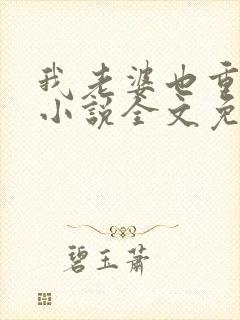 我老婆也重
小说全文免
碧玉萧